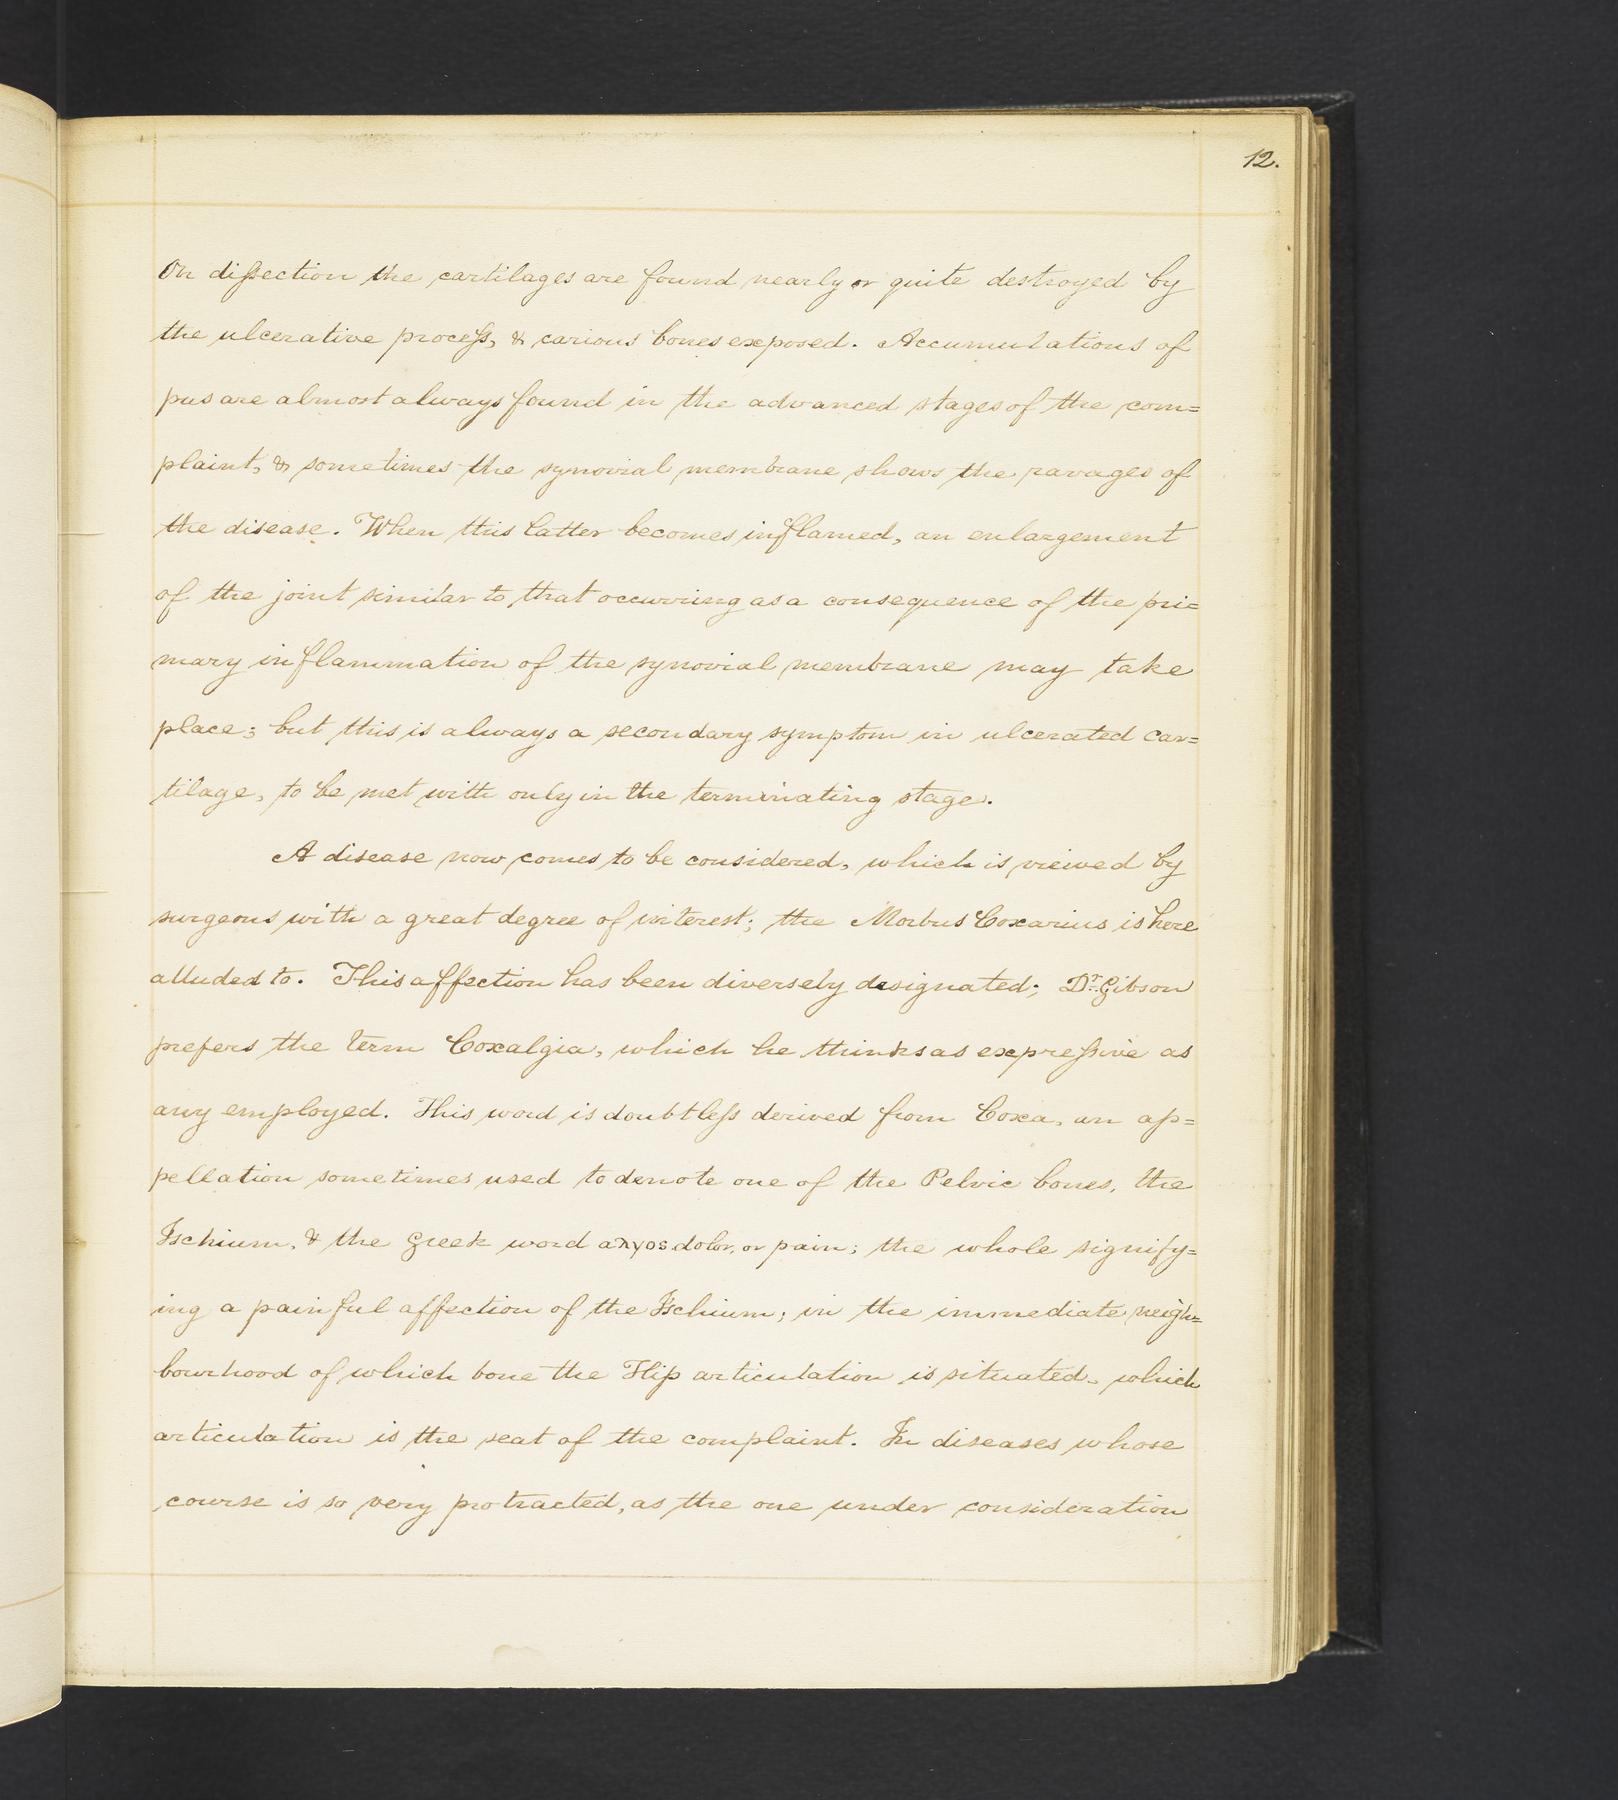 12.
On dissection the cartilages are found nearly or quite destroyed by
the ulcerative process, & carious bones exposed. Accumulations of
pus are almost always found in the advanced stages of the com=
plaint, & sometimes the synovial membrane shows the ravages of
the disease. When this latter becomes inflamed, an enlargement
of the joint similar to that occurring as a consequence of the pri=
mary inflammation of the synovial membrane may take
place; but this is always a secondary symptom in ulcerated car=
tilage, to be met with only in the terminating stage.
A disease now comes to be considered, which is vieived by
surgeons with a great degree of interest; the Morbus Coxarius is here
alluded to. This affection has been diversely designated; Dr. Gibson
prefers the term Coxalgia, which he thinks as expressive as
any employed. This word is doubtless derived from Coxa, an ap=
pellation sometimes used to denote one of the Pelvic bones, the
Ischium, & the Greek word αλγος dolor, or pain; the whole signify=
ing a painful affection of the Ischium; in the immediate neigh=
bourhood of which bone the Hip articulation is situated, which
articulation is the seat of the complaint. In diseases whose
course is so very protracted, as the one under consideration